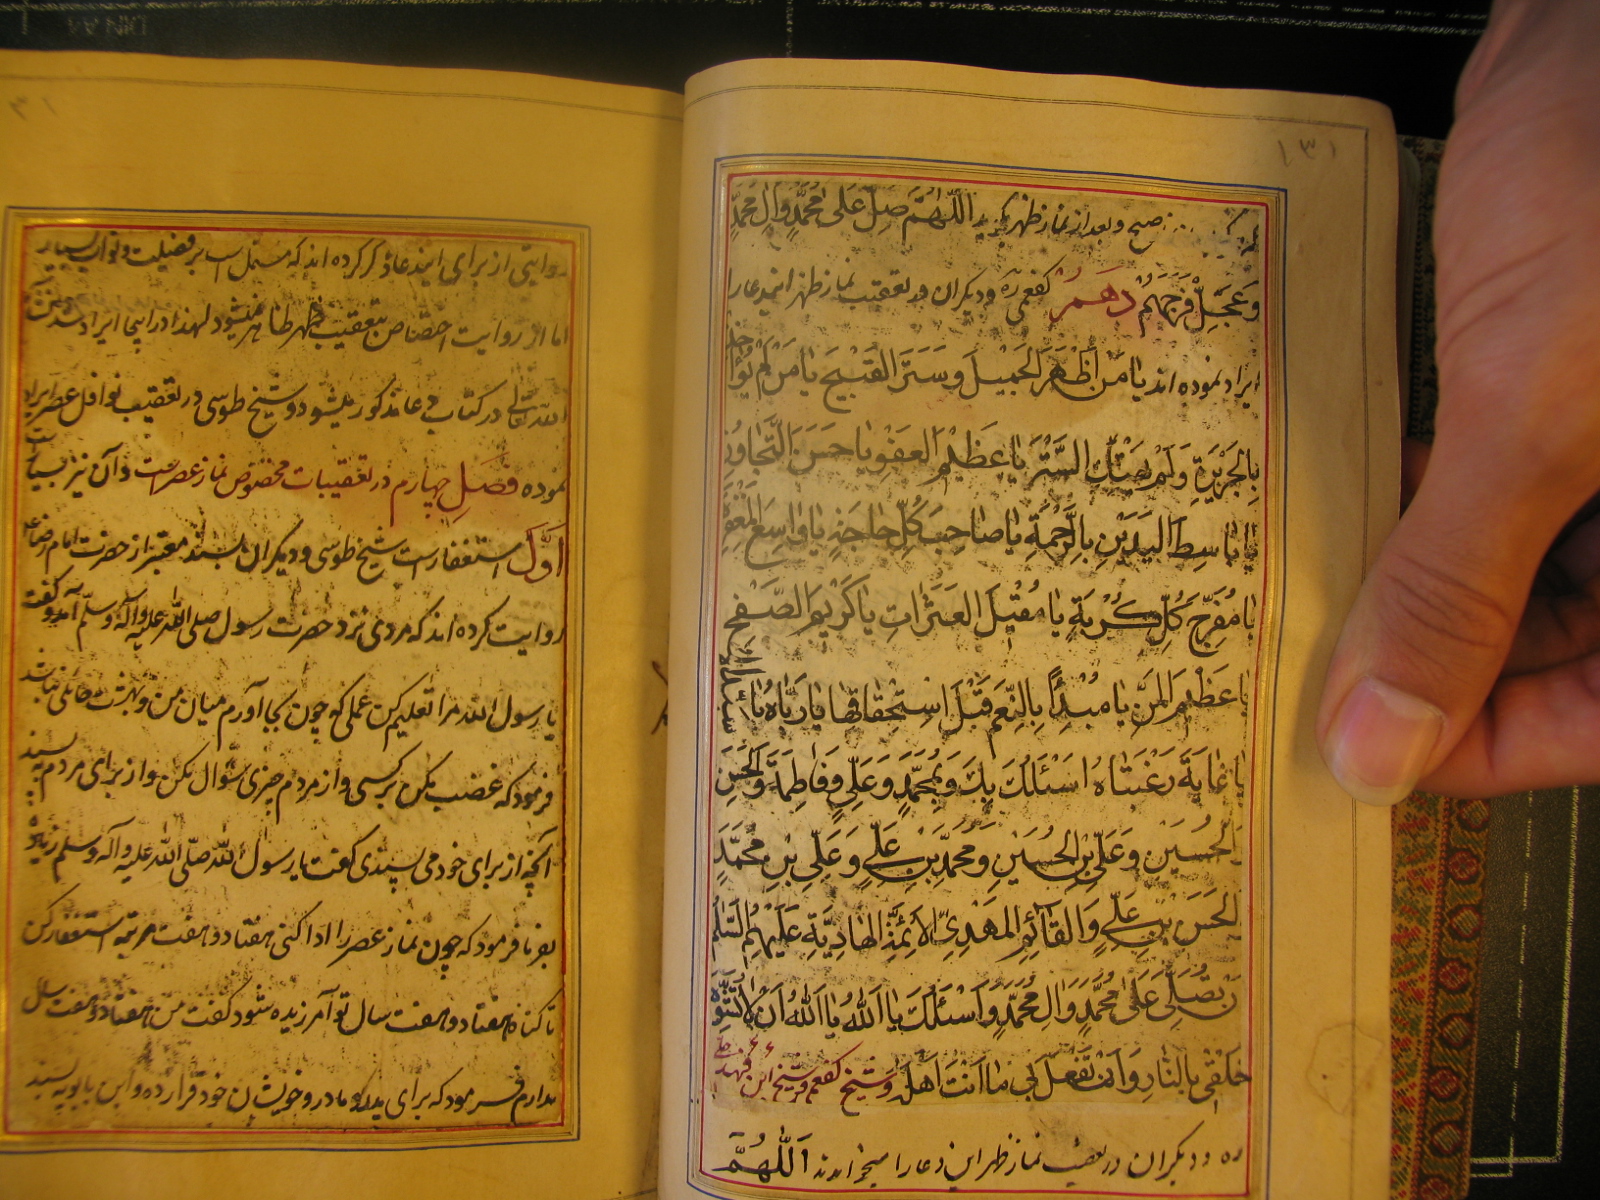 ١٣١
صبح و بعد از نماز ظهر بگوید اللّٰهُمَّ صَلِّ عَلٰی مُحَمَّدٍ وَاٰلِ مُحَمَّدٍ
وَعَجِّلْ فَرَجَهُمْ دهم کفعمی ره و دیگران در تعقیب نماز ظهر این دعا را
ایراد نموده اند یا مَنْ اَظْهَرَ الْجَمیلَ وَ سَتَرَ الْقَبیحَ یا مَنْ لَمْ یُؤاخِذْ
بِالْجَریرَةِ وَلَمْ یَهْتِكِ السِّتْرَ یا عَظیمَ الْعَفْوِ یا حَسَنَ التَّجاوُزِ
یا باسِطَ الْیَدَیْنِ بِالرَّحْمَةِ یا صاحِبَ کُلِّ حاجَةٍ یا واسِعَ الْمَغْفِرَةِ
یا مُفَرِّجَ کُلِّ کُرْبَةٍ یا مُقیلَ الْعَثَراتِ یا کَریمَ الصَّفْحِ
یا عَظیمَ الْمَنِّ یا مُبْدِأً بِالنِّعَمِ قَبْلَ اسْتِحْقاقِها یا رَبّاهُ یا سَیِّداهُ
یا غایَةَ رَغْبَتاهُ اَسْئَلُكَ بِكَ وَبِمُحَمَّدٍ وَعَلِیٍّ وَفاطِمَةَ وَالْحَسَنِ
الْحُسَیْنِ وَعَلِیِّ بْنِ الْحُسَیْنِ وَمُحَمَّدِ بْنِ عَلِیٍّ وَعَلِیِّ بْنِ مُحَمَّدٍ
الْحَسَنِ بْنِ عَلِیٍّ وَالْقآئِمِ الْمَهْدِیِّ الْاَئِمَّةِ الْهادِیَةِ عَلَیْهِمُ السَّلٰمُ
نْ تُصَلِّیَ عَلٰی مُحَمَّدٍ وَاٰلِ مُحَمَّدٍ وَاَسْئَلُكَ یا اَللّٰهُ یا اَللّٰهُ اَنْ لا تُشَوِّهَ
خَلْقی بِالنّارِ وَاَنْ تَفْعَلَ بی ما اَنْتَ اَهْلُهُ و شیخ کفعمی و شیخ ابن فهد حلی
ره و دیگران در تعقیب نماز ظهر این دعا را میخوانند اَللّٰهُمَّ
روایتی از برای این دعا ذکر کرده اند که مشتمل است بر فضیلت و ثواب بسیار
اما از روایت اختصاص بتعقیب ظهر ظاهر نمیشود لهذا در اینجا ایراد
الله تعالی در کتاب دعا مذکور میشود و شیخ طوسی در تعقیب نوافل عصر ایراد
نموده فصل چهارم در تعقیبات مخصوص نماز عصر است و آن نیز بسیار است
اوّل استغفار است شیخ طوسی و دیگران بسند معتبر از حضرت امام رضا
روایت کرده اند که مردی نزد حضرت رسول صلی الله علیه وآله وسلّم آمد و گفت
یا رسول الله مرا تعلیم کن عملی که چون بجا آورم میان من و بهشت حائلی نباشد
فرمود که غضب مکن بر کسی و از مردم چیزی سئوال مکن و از برای مردم بپسند
آنچه از برای خود می پسندی گفت یا رسول الله صلّی الله علیه وآله وسلم زیاده
بفرما فرمود که چون نماز عصر را ادا کنی هفتاد و هفت مرتبه استغفار کن
تا گناه هفتاد و هفت سال تو آمرزیده شود گفت من هفتاد و هفت سال
ندارم فرمود که برای پدر و مادر و خویشان خود قرار ده و ابن بابویه بسند